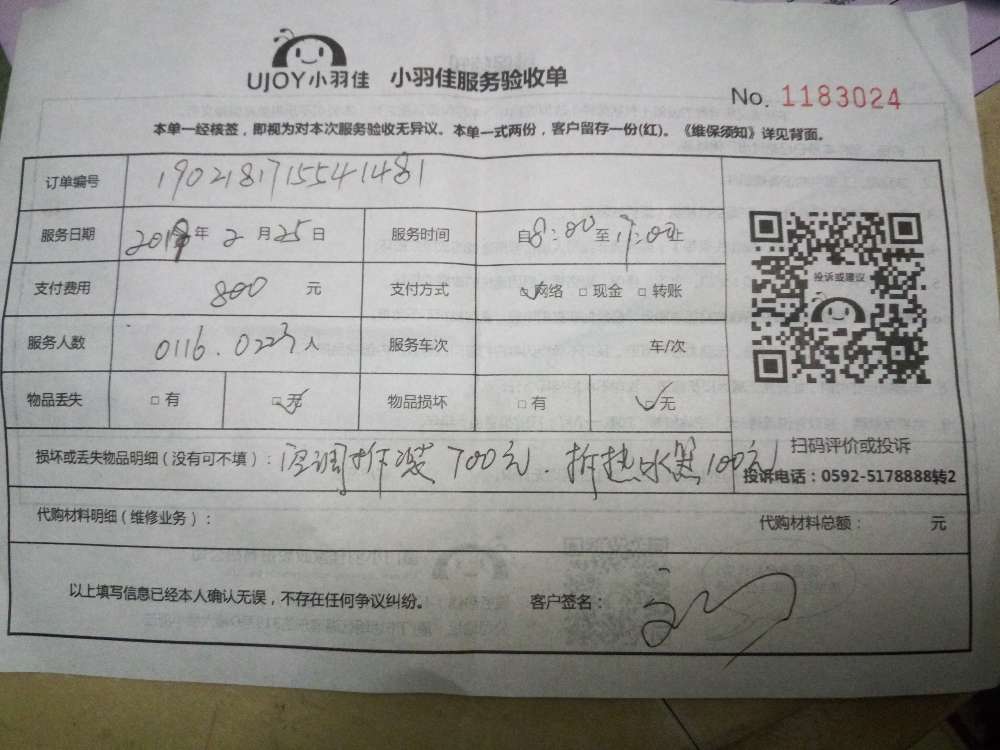 UJOY小羽佳 小羽佳服务验收单
No. 1183024
本单一经核签，即视为对本次服务验收无异议。本单一式两份，客户留存一份(红)。《维保须知》详见背面。
订单编号 190218171554 1481
服务日期 2019年2月25日 服务时间 自8:00至17:00止
支付费用 800 元 支付方式 □网络 □现金 □转账
投诉或建议
服务人数 0116.0223人 服务车次 车/次
物品丢失 □有 □无 物品损坏 □有 □无
扫码评价或投诉
损坏或丢失物品明细（没有可不填）：空调拆装700元.拆热水器100元
投诉电话：0592-5178888转2
代购材料明细（维修业务）： 代购材料总额： 元
以上填写信息已经本人确认无误，不存在任何争议纠纷。 客户签名：